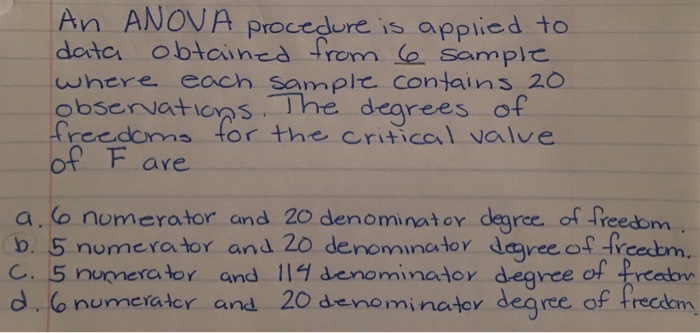 An ANOVA procedure is applied to
data obtained from 6 sample
where each sample contains 20
observations. The degrees of
freedoms for the critical value
of F are
a. 6 numerator and 20 denominator degree of freedom.
b. 5 numerator and 20 denominator degree of freedom.
c. 5 numerator and 114 denominator degree of freedom
d. 6 numerator and 20 denominator degree of freedom.